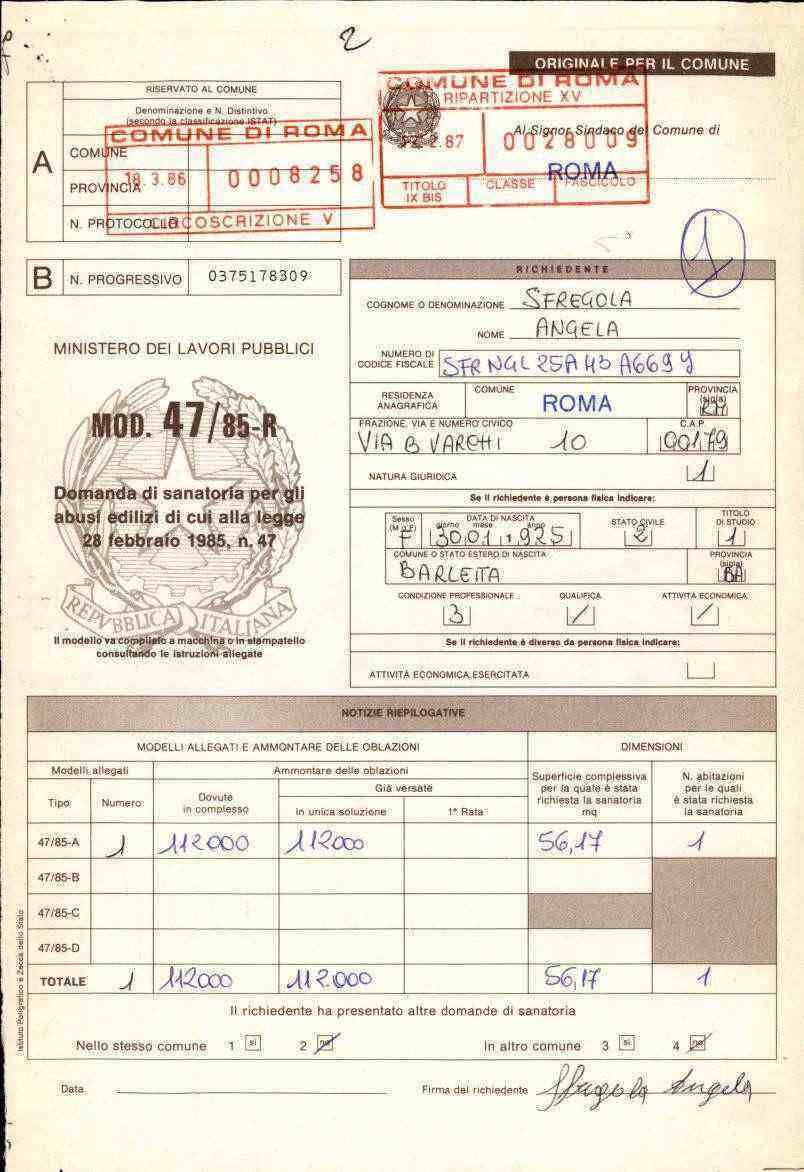 2
ORIGINALE PER IL COMUNE
RISERVATO AL COMUNE
Denominazione e N. Distintivo
(secondo la classificazione ISTAT)
A
COMUNE
PROVINCIA
N. PROTOCOLLO
COMUNE DI ROMA
18.3.86 0008258
CIRCOSCRIZIONE V
COMUNE DI ROMA
RIPARTIZIONE XV
2.87 0028009
TITOLO IX BIS CLASSE FASCICOLO
Al Signor Sindaco del Comune di
ROMA
1
B N. PROGRESSIVO 0375178309
MINISTERO DEI LAVORI PUBBLICI
MOD. 47/85-R
Domanda di sanatoria per gli
abusi edilizi di cui alla legge
28 febbraio 1985, n. 47
REPVBBLICA ITALIANA
Il modello va compilato a macchina o in stampatello
consultando le istruzioni allegate
RICHIEDENTE
COGNOME O DENOMINAZIONE SFREGOLA
NOME ANGELA
NUMERO DI CODICE FISCALE SFR NGL 25A 43 A669 Y
RESIDENZA ANAGRAFICA COMUNE ROMA PROVINCIA (sigla) RM
FRAZIONE, VIA E NUMERO CIVICO C.A.P.
VIA B VARCHI 10 00179
NATURA GIURIDICA 1
Se il richiedente è persona fisica indicare:
Sesso (M o F) DATA DI NASCITA giorno mese anno STATO CIVILE TITOLO DI STUDIO
F 30 01 1925 2 1
COMUNE O STATO ESTERO DI NASCITA PROVINCIA (sigla)
BARLETTA BA
CONDIZIONE PROFESSIONALE QUALIFICA ATTIVITÀ ECONOMICA
3 / /
Se il richiedente è diverso da persona fisica indicare:
ATTIVITÀ ECONOMICA ESERCITATA
NOTIZIE RIEPILOGATIVE
MODELLI ALLEGATI E AMMONTARE DELLE OBLAZIONI DIMENSIONI
Modelli allegati Ammontare delle oblazioni
Tipo Numero Dovute in complesso Già versate
In unica soluzione 1ª Rata
Superficie complessiva per la quale è stata richiesta la sanatoria mq
N. abitazioni per le quali è stata richiesta la sanatoria
47/85-A 1 112000 112000 56,17 1
47/85-B
47/85-C
47/85-D
TOTALE 1 112000 112000 56,17 1
Il richiedente ha presentato altre domande di sanatoria
Nello stesso comune 1 si 2 no In altro comune 3 si 4 no
Data Firma del richiedente Sfregola Angela
Istituto Poligrafico e Zecca dello Stato